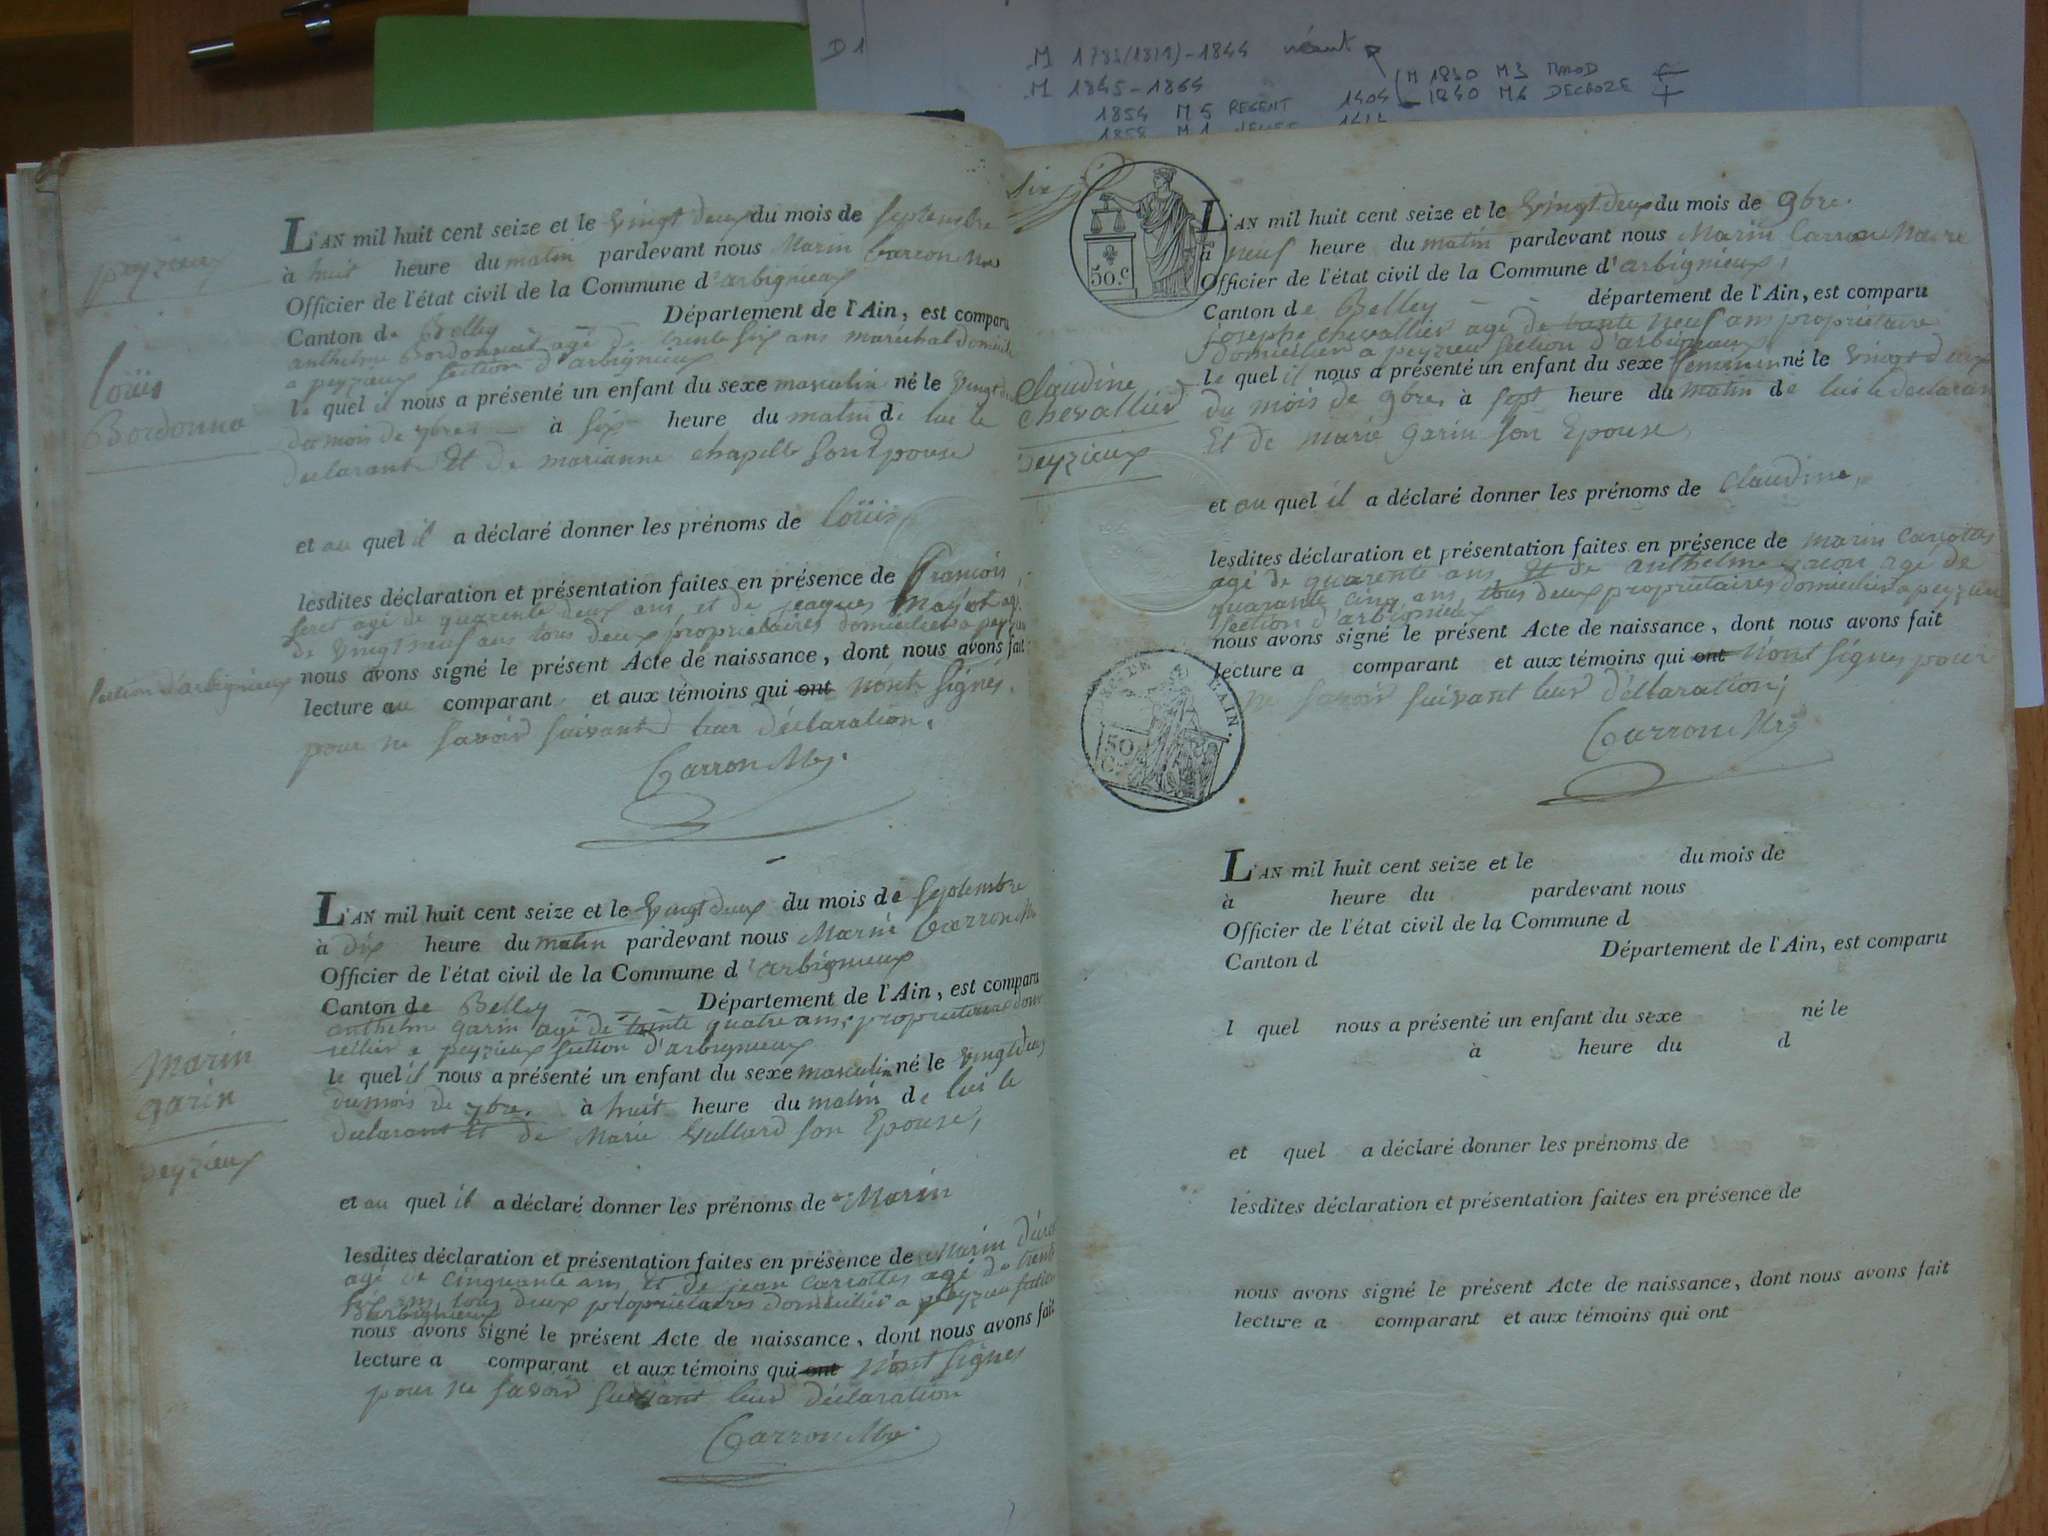 D 1
M 1793(1819)-1844 néant
M 1845-1864
M 1830 M3
1840 M6 DECROZE
1854 M5 REGENT 1404
1858 M1
peyzieux
Loüis
Bordonna
section d'arbignieux
L'AN mil huit cent seize et le vingt deux du mois de septembre
à huit heure du matin pardevant nous Marin Carron Mre
Officier de l'état civil de la Commune d'arbignieux
Canton de Belley Département de l'Ain, est comparu
anthelme Bordonnat agé de trente six ans maréchal domicilié
a peyzieux section d'arbignieux
le quel il nous a présenté un enfant du sexe masculin né le vingt deux
du mois de 7bre à six heure du matin de lui le
declarant Et de marianne chapelle son Epouse
et au quel il a déclaré donner les prénoms de Loüis
lesdites déclaration et présentation faites en présence de francois
seret agé de quarente deux ans et de jacques mayot agé
de vingt neuf ans tous deux propriétaires domiciliés a peyzieu
nous avons signé le présent Acte de naissance, dont nous avons fait
lecture au comparant et aux témoins qui ont n'ont signés
pour ne savoir suivant leur déclaration.
Carron Mre.
Marin
garin
peyzieux
L'AN mil huit cent seize et le vingt deux du mois de septembre
à dix heure du matin pardevant nous Marin Carron Mre
Officier de l'état civil de la Commune d'arbignieux
Canton de Belley Département de l'Ain, est comparu
anthelme garin agé de trente quatre ans, propriétaire domi
cillier a peyzieux section d'arbignieux
le quel il nous a présenté un enfant du sexe masculin né le vingt deux
du mois de 7bre. à huit heure du matin de lui le
declarant Et de Marie Vullard son Epouse,
et au quel il a déclaré donner les prénoms de Marin
lesdites déclaration et présentation faites en présence de Marin
agé de cinquante ans Et de jean Carrottes agé de trente
six ans tous deux propriétaires domiciliés a peyzieu section
d'arbignieux
nous avons signé le présent Acte de naissance, dont nous avons fait
lecture a comparant et aux témoins qui ont n'ont signés
pour ne savoir suivant leur déclaration
Carron Mre.
six
50 c.
Claudine
chevallier
peyzieux
AIN.
50
C.
L'AN mil huit cent seize et le vingt deux du mois de 9bre.
à neuf heure du matin pardevant nous Marin Carron Maire
Officier de l'état civil de la Commune d'arbignieux,
Canton de Belley département de l'Ain, est comparu
josephe chevallier agé de trante neuf ans propriétaire
domicilier a peyzieu section d'arbignieux
le quel il nous a présenté un enfant du sexe feminin né le vingt deux
du mois de 9bre, à sept heure du matin de lui le declaran
Et de marie garin son Epouse,
et au quel il a déclaré donner les prénoms de Claudine,
lesdites déclaration et présentation faites en présence de marin carrottes
agé de quarente ans Et de anthelme agé de
quarante cinq ans, tous deux propriétaires domiciliés a peyzieu
section d'arbignieux
nous avons signé le présent Acte de naissance, dont nous avons fait
lecture a comparant et aux témoins qui ont n'ont signés pour
ne savoir suivant leur déclaration;
Carron Mre
L'AN mil huit cent seize et le du mois de
à heure du pardevant nous
Officier de l'état civil de la Commune d
Canton d Département de l'Ain, est comparu
l quel nous a présenté un enfant du sexe né le
à heure du d
et quel a déclaré donner les prénoms de
lesdites déclaration et présentation faites en présence de
nous avons signé le présent Acte de naissance, dont nous avons fait
lecture a comparant et aux témoins qui ont